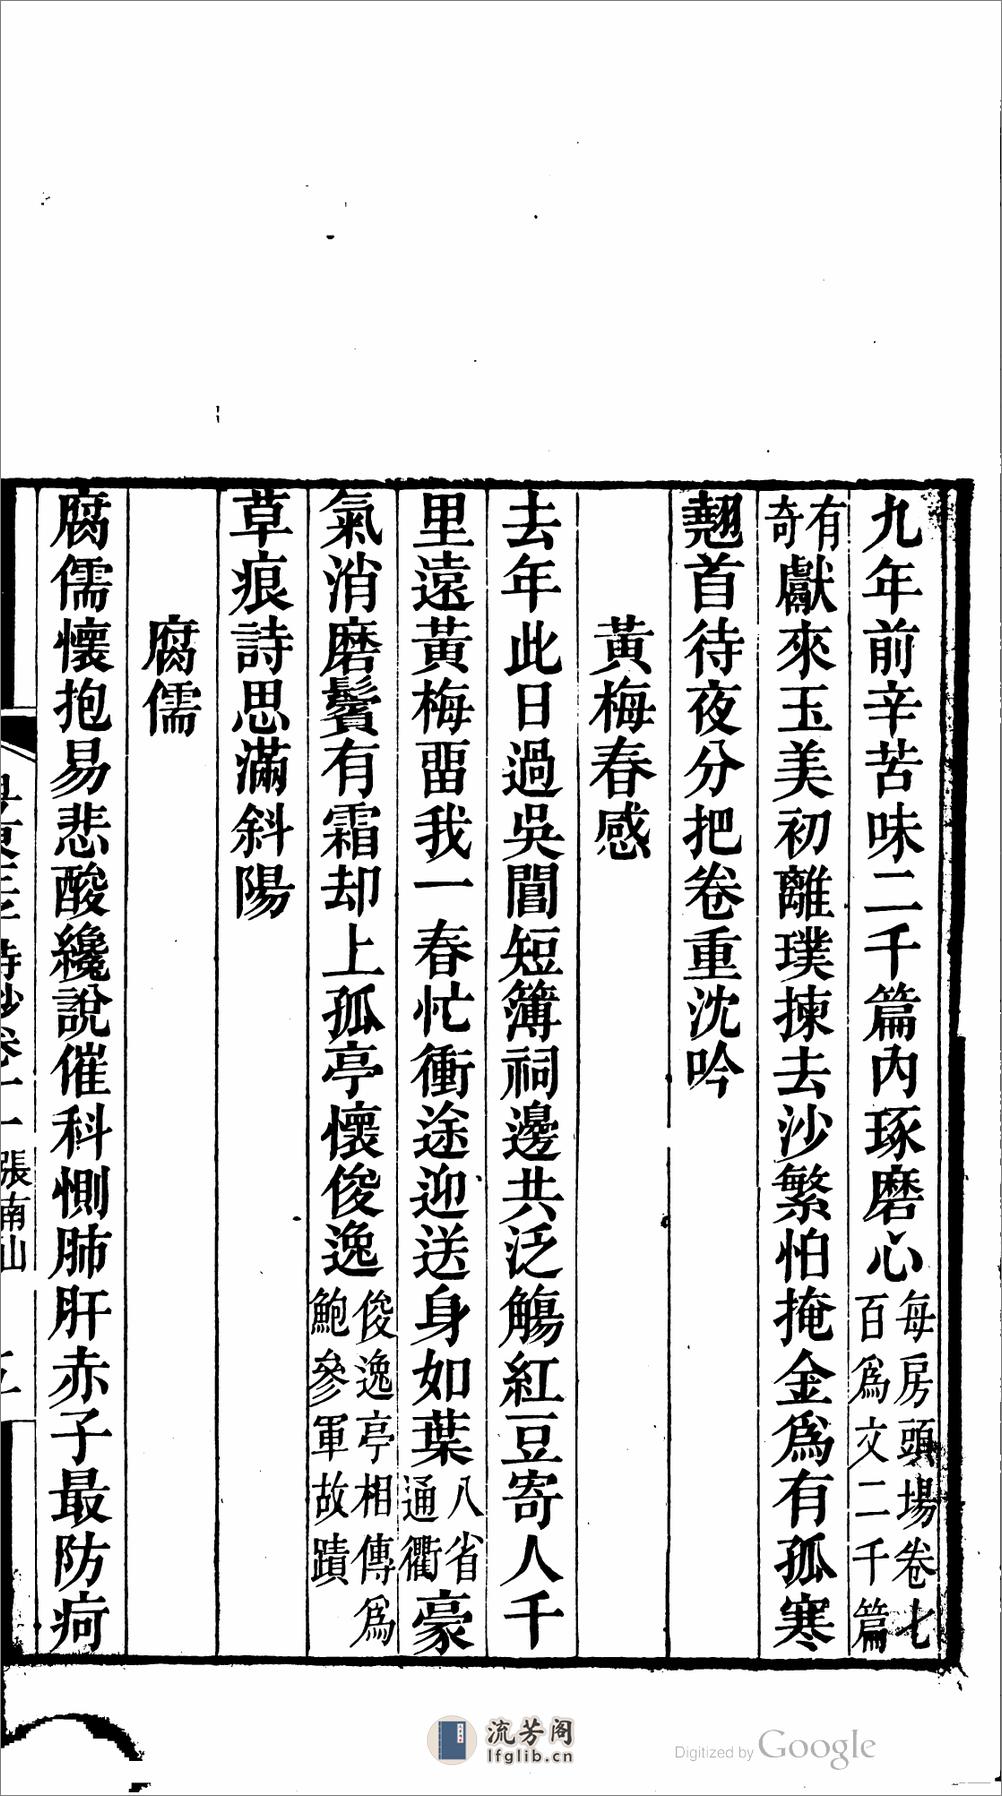 九年前辛苦味二千篇內琢磨心每房頭場卷七百爲文二千篇
有奇獻來玉美初離璞揀去沙繁怕掩金爲有孤寒
翹首待夜分把卷重沈吟
黃梅春感
去年此日過吳閶短簿祠邊共泛觴紅豆寄人千
里遠黃梅畱我一春忙衝途迎送身如葉八省通衢豪
氣消磨鬢有霜却上孤亭懷俊逸俊逸亭相傳爲鮑參軍故蹟
草痕詩思滿斜陽
腐儒
腐儒懷抱易悲酸纔說催科惻肺肝赤子最防疴
詩鈔卷十一 張南山
流芳阁
lfglib.cn
Digitized by Google